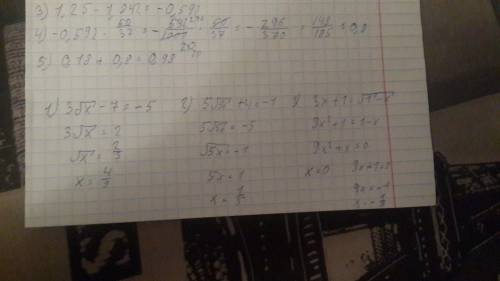 3) 1,25 - 1,842 = -0,592
4) -0,592 · 50/37 = - 592/1000 · 50/37 = - 296/370 = 148/185 = 0,8
5) 0,18 + 0,8 = 0,98
1) 3√x - 7 = -5
3√x = 2
√x = 2/3
x = 4/9
2) 5√5x + 4 = -1
5√5x = -5
√5x = -1
5x = 1
x = 1/5
3) 3x + 1 = √1 - x
9x² + 1 = 1 - x
9x² + x = 0
x = 0 9x + 1 = 0
9x = -1
x = - 1/9